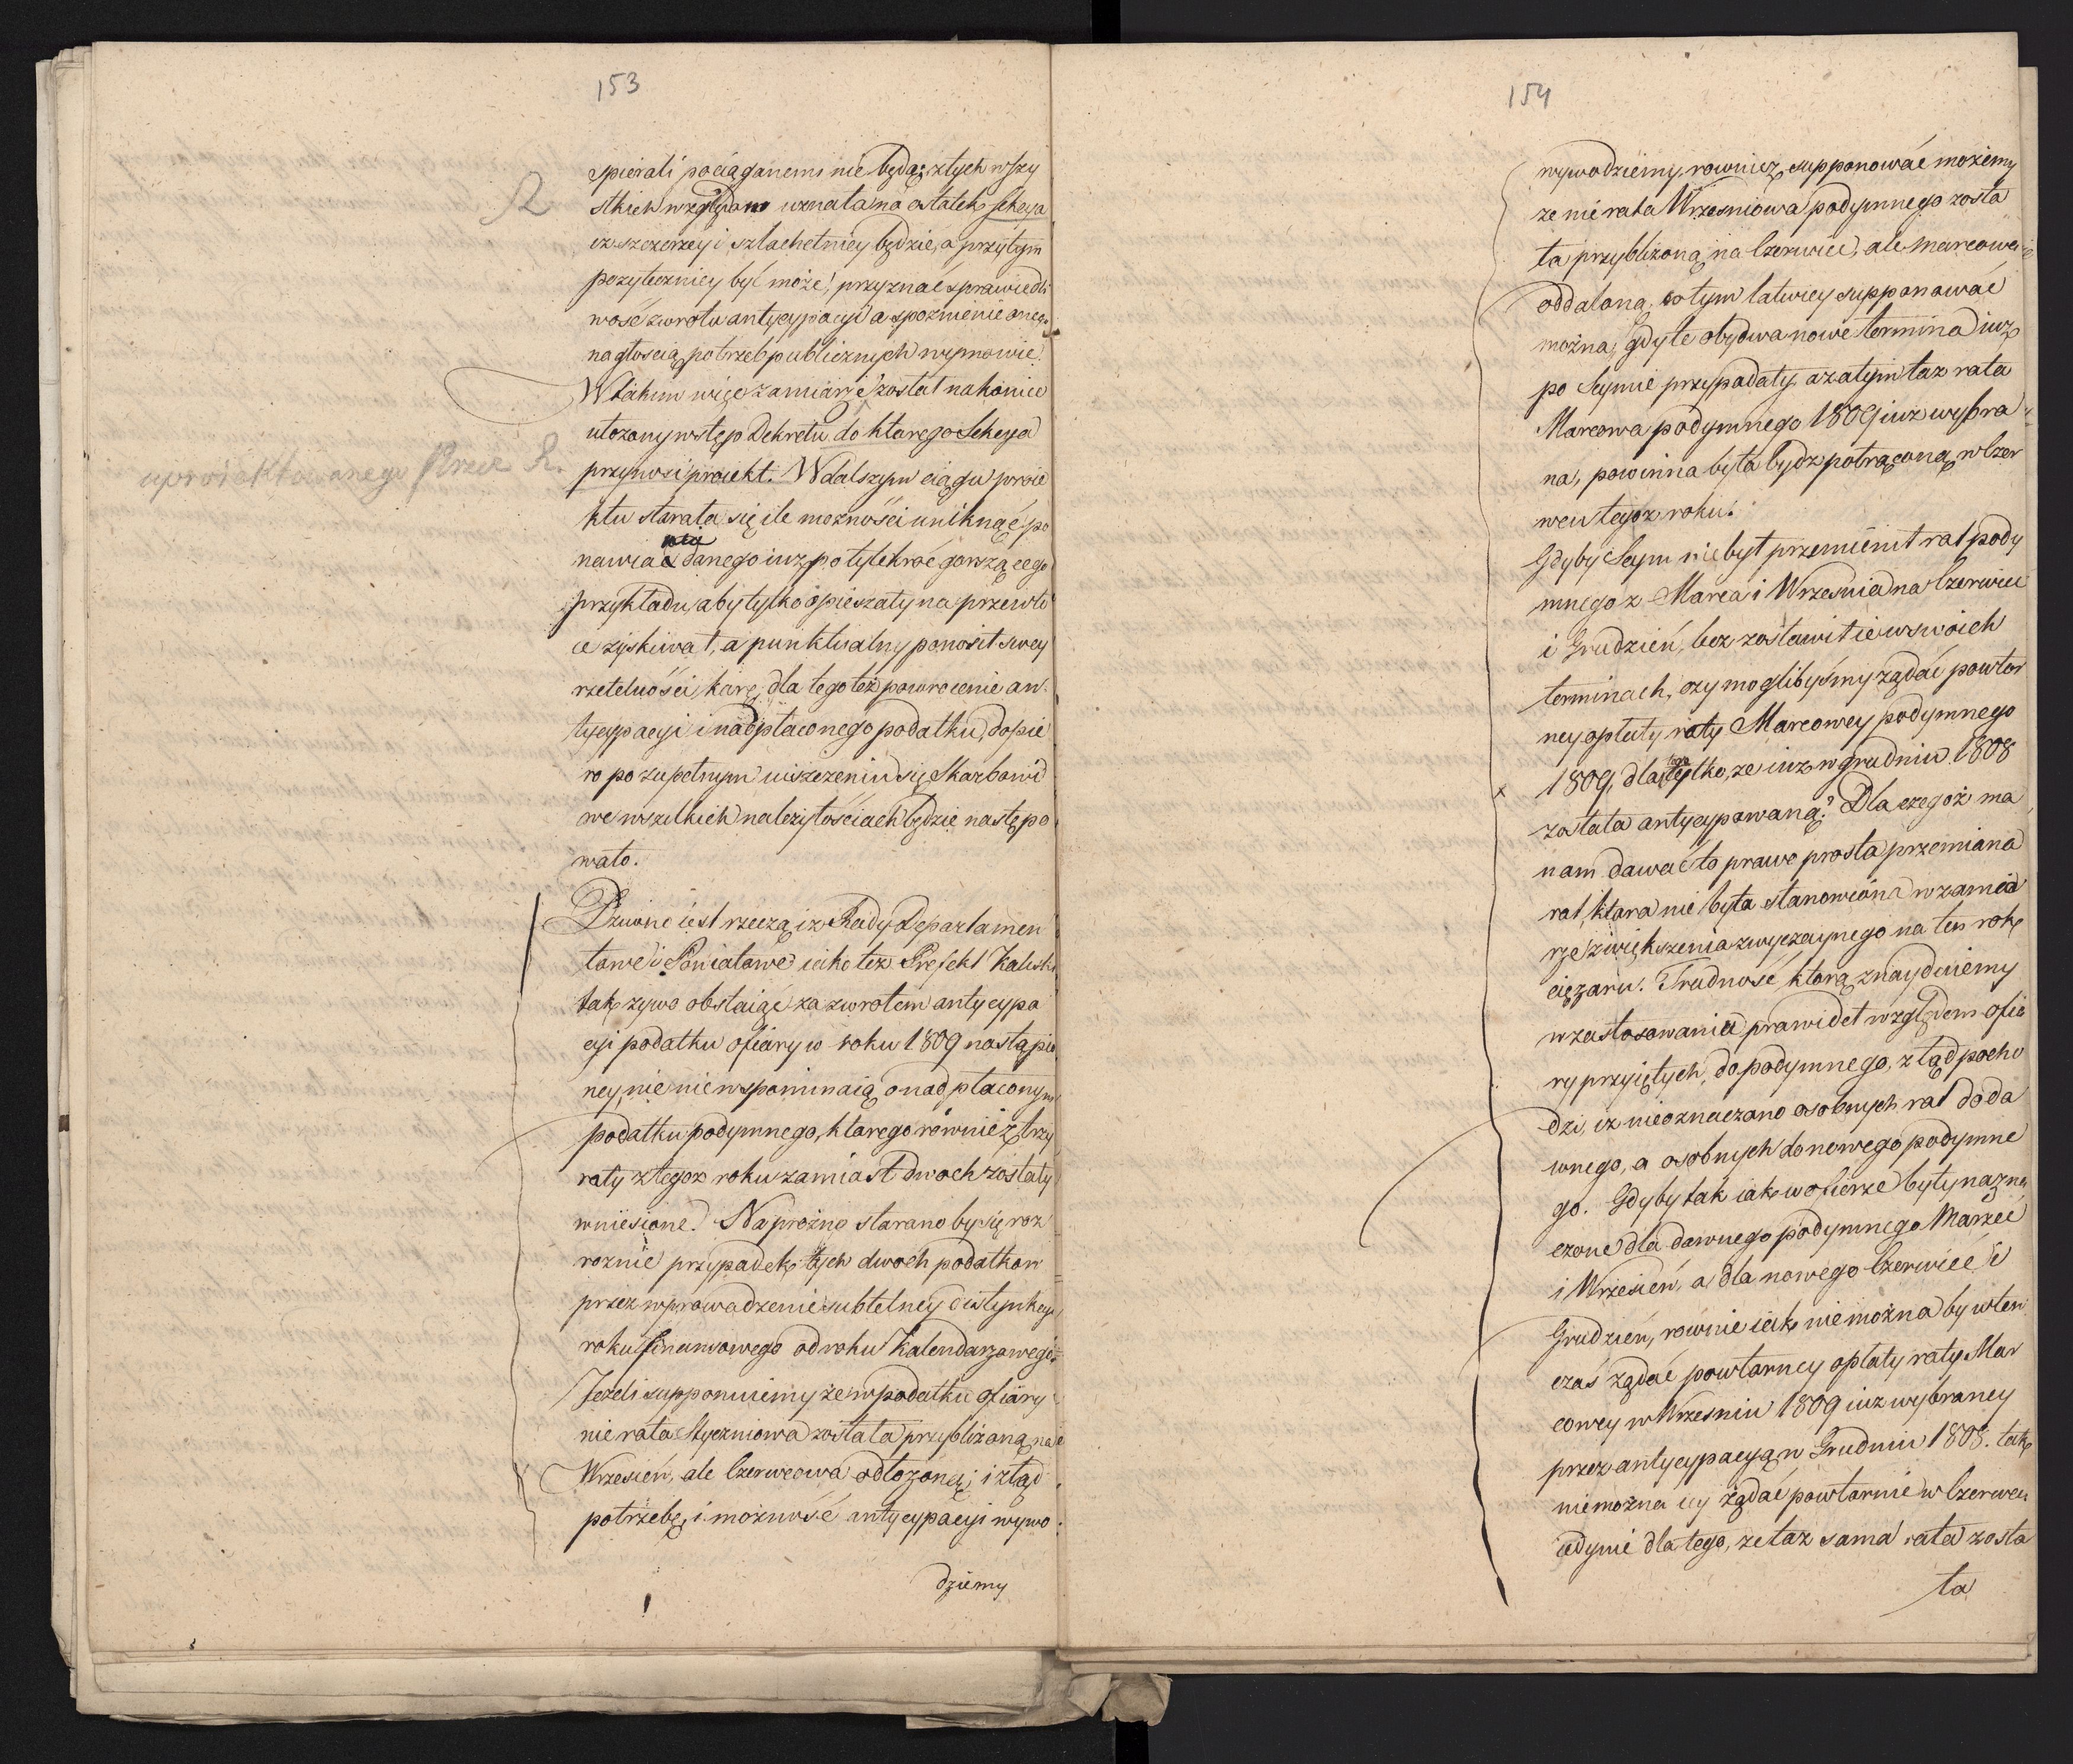 153
spierali pociąganemi nie będą; z tych wszy
stkich względow uznała na ostatek Sekcya
iz szczerzey i szlachetniey będzie, a przytym
pozyteczniey być może, przyznać sprawiedli
wość zwrotu antycypacyi a spoznienie onego
nagłoscią potrzeb publicznych wymowić.
W takim więc zamiarze został na koniec
ułozony wstęp Dekretu do ktorego Sekcya
uproiektowanego przez S.
przynosi proiekt. W dalszym ciągu proie
ktu starała się ile mozności uniknąć po
nawia danego iuz po tylekroć gorszącego
przykładu, aby tylko opieszały na przewło
ce zyskiwał, a punktualny ponosił swey
rzetelności karę, dla tego też powrocenie an
tycypacyi i nadpłaconego podatku, dopie
ro po zupełnym uiszczeniu się Skarbowi
we wszelkich nalezytościach będzie następo
wało.
Dziwno iest rzeczą iz Rady Departamen
towe i Powiatowe iako tez Prefekt Kaliski
tak zywo obstaiąc za zwrotem antycypa
cyi podatku ofiary w roku 1809 nastąpio
ney, nic nie wspominaią o nadpłaconym
podatku podymnego, ktorego rownież trzy
raty z tegoz roku zamiast dwoch zostały
wniesione. Naprozno starano by się roz
roznić przypadek tych dwoch podatkow
przez wprowadzenie subtelney distynkcyi
roku finansowego od roku Kalendarzowego.
Jezeli supponuiemy że w podatku ofiary
nie rata Styczniowa została przyblizoną na
Wrzesień, ale Czerwcowa odłozoną; i ztąd
potrzebę i możność antycypacyi wywo
dziemy
154
wywodziemy, rownież supponować możemy
ze nie rata Wrzesniowa podymnego zosta
ła przyblizoną na Czerwiec, ale Marcowa
oddaloną, co tym łatwiey supponować
można, gdy te obydwa nowe termina iuz
po Seymie przypadały, a zatym taz rata
Marcowa podymnego 1809 iuz wybra
na, powinna była bydz potrąconą w Czer
wcu tegoz roku.
Gdyby Seym nie był przemienił rat pody
mnego z Marca i Września na Czerwiec
i Grudzień, lecz zostawił ie w swoich
terminach, czy moglibyśmy żądać powtor
ney opłaty raty Marcowey podymnego
1809, dla tego tylko, ze iuz w grudniu 1808
została antycypowaną? Dla czegoż ma
nam dawać to prawo prosta przemiana
rat, ktora nie była stanowiona w zamia
rze zwiększenia zwyczaynego na ten rok
ciężaru. Trudność, ktorą znayduiemy
w zastosowaniu prawideł względem ofia
ry przyiętych, do podymnego, ztąd pocho
dzi, iz nieoznaczono osobnych rat do da
wnego, a osobnych do nowego podymne
go. Gdyby tak iak w ofierze były nazna
czone dla dawnego podymnego Marzec
i Wrzesień, a dla nowego Czerwiec i
Grudzień, rownie iak nie można by w ten
czas żądać powtorney opłaty raty Mar
cowey w Wrzesniu 1809 iuz wybraney
przez antycypacyą w Grudniu 1808. tak
nie można iey żądać powtornie w Czerwcu
iedynie dla tego, ze taz sama rata zosta
ła